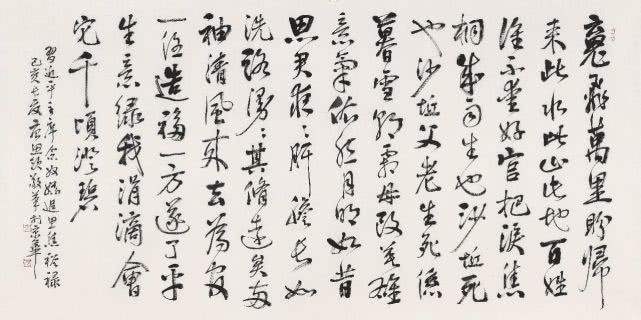 魂飛萬里盼歸
来此水此山此地百姓
誰不愛好官把淚焦
桐成雨生也沙丘死
也沙丘父老生死係
暮雪朝霜毋改英雄
意氣依然月明如昔
思君夜〻肝膽長如
洗路漫〻其修遠矣兩
袖清風来去為官
一任造福一方遂了平
生意緑我涓滴會
它千頃澄碧
習近平主席念奴嬌追思焦裕禄
己亥 敬草 京華